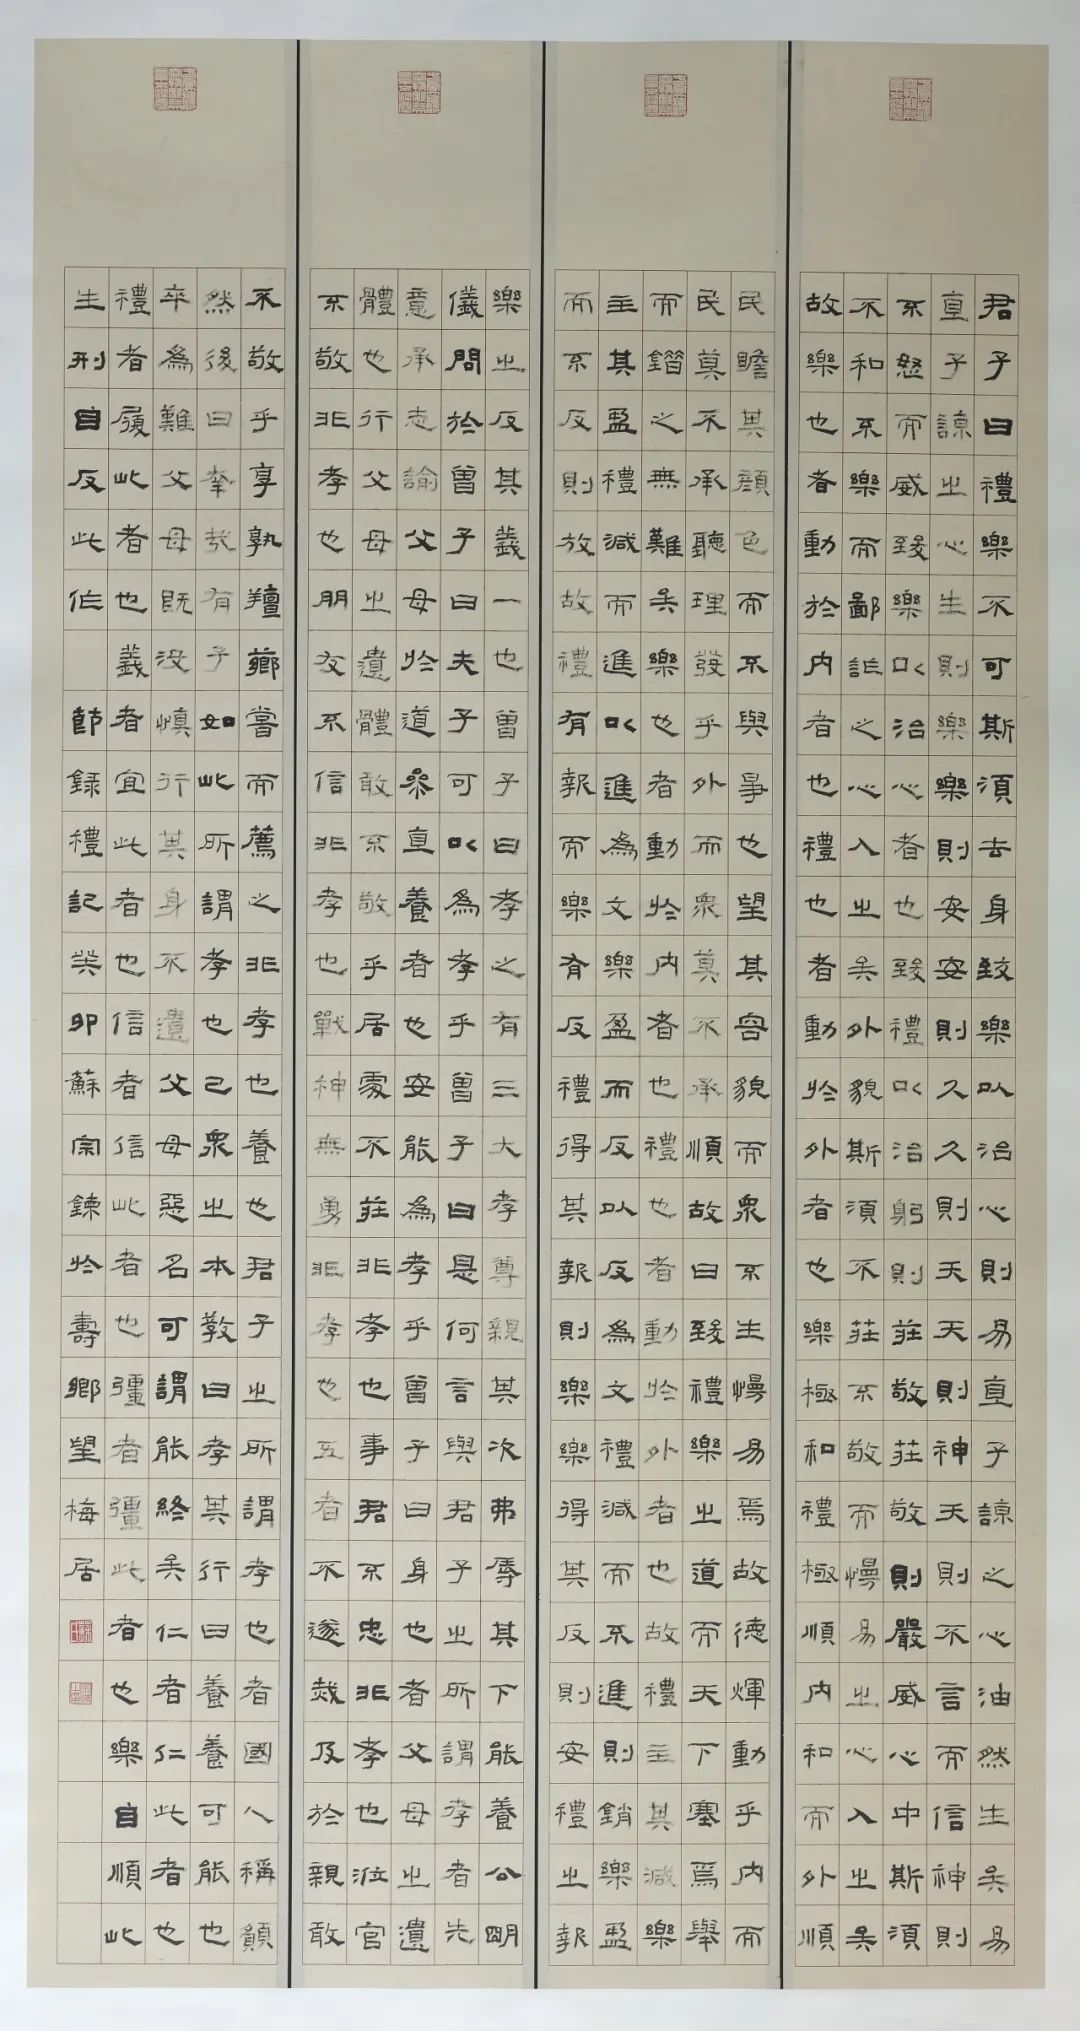 君子曰禮樂不可斯須去身致樂以治心則易直子諒之心油然生矣易
直子諒之心生則樂樂則安安則久久則天天則神天則不言而信神則
不怒而威致樂以治心者也致禮以治躬則莊敬莊敬則嚴威心中斯須
不和不樂而鄙詐之心入之矣外貌斯須不莊不敬而慢易之心入之矣
故樂也者動於內者也禮也者動於外者也樂極和禮極順內和而外順
民瞻其顏色而不與爭也望其容貌而眾不生慢易焉故德煇動乎內而
民莫不承聽理發乎外而眾莫不承順故曰致禮樂之道而天下塞焉舉
而錯之無難矣樂也者動於內者也禮也者動於外者也故禮主其減樂
主其盈禮減而進以進為文樂盈而反以反為文禮減而不進則銷樂盈
而不反則放故禮有報而樂有反禮得其報則樂樂得其反則安禮之報
樂之反其義一也曾子曰孝之有三大孝尊親其次弗辱其下能養公明
儀問於曾子曰夫子可以為孝乎曾子曰是何言與君子之所謂孝者先
意承志諭父母於道參直養者也安能為孝乎曾子曰身也者父母之遺
體也行父母之遺體敢不敬乎居處不莊非孝也事君不忠非孝也涖官
不敬非孝也朋友不信非孝也戰陣無勇非孝也五者不遂烖及於親敢
不敬乎享孰羶薌嘗而薦之非孝也養也君子之所謂孝也者國人稱願
然後曰幸哉有子如此所謂孝也已眾之本教曰孝其行曰養養可能也
卒為難父母既沒慎行其身不遺父母惡名可謂能終矣仁者仁此者也
禮者履此者也義者宜此者也信者信此者也彊者彊此者也樂自順此
生刑自反此作 節錄禮記癸卯蘇宗鍊於壽鄉望梅居